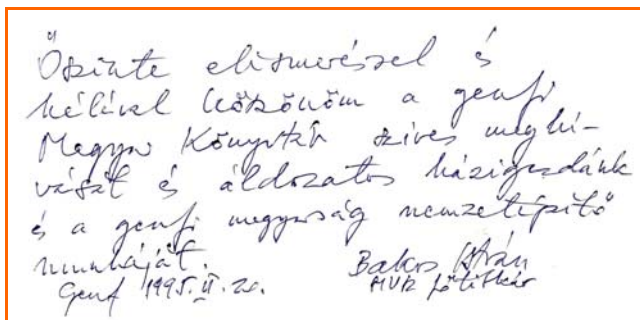 Őszinte elismeréssel és
hálával köszönöm a genfi
Magyar Könyvtár szives meghí-
vását és áldozatos házigazdánk
és a genfi magyarság nemzetépítő
munkáját.
Bakos István
Genf 1995. II. 20.
MVSZ főtitkár